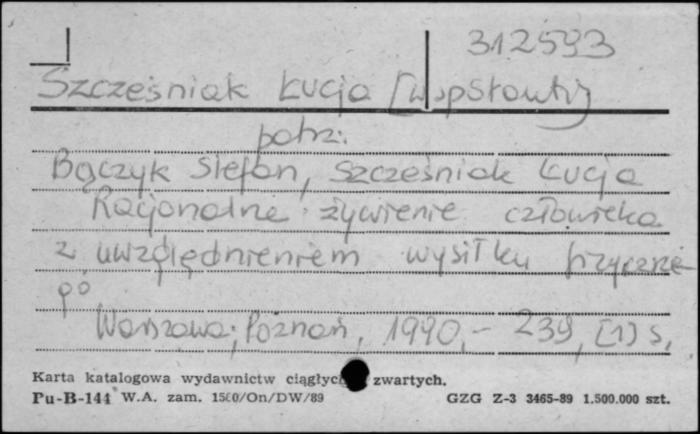 312593
Szcześniak Łucja [współaut.]
patrz:
Bączyk Stefan, Szcześniak Łucja
Racjonalne żywienie człowieka
z uwzględnieniem wysiłku fizyczne-
go
Warszawa; Poznań, 1990. - 239, [1] s.
Karta katalogowa wydawnictw ciągłych zwartych.
Pu-B-144 W.A. zam. 1560/On/DW/89 GZG Z-3 3465-89 1.500.000 szt.